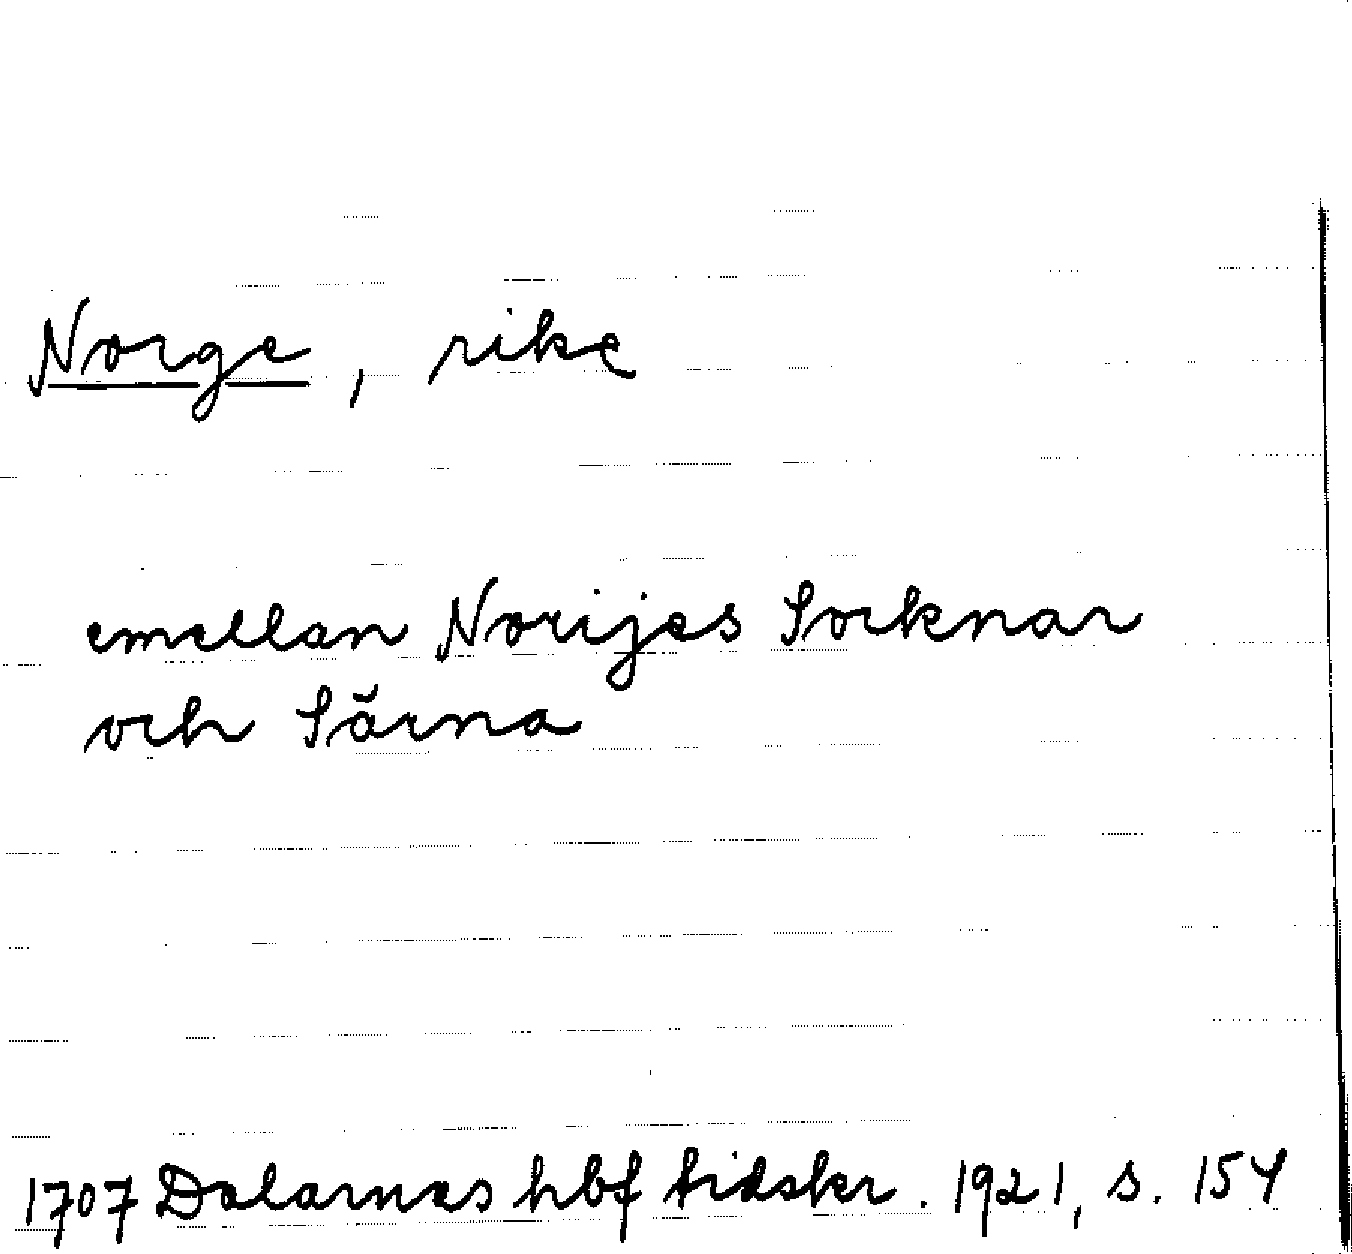 Norge, rike
emellan Norijes Socknar
och Särna
1707 Dalarnas hbf tidskr. 1921, s. 154